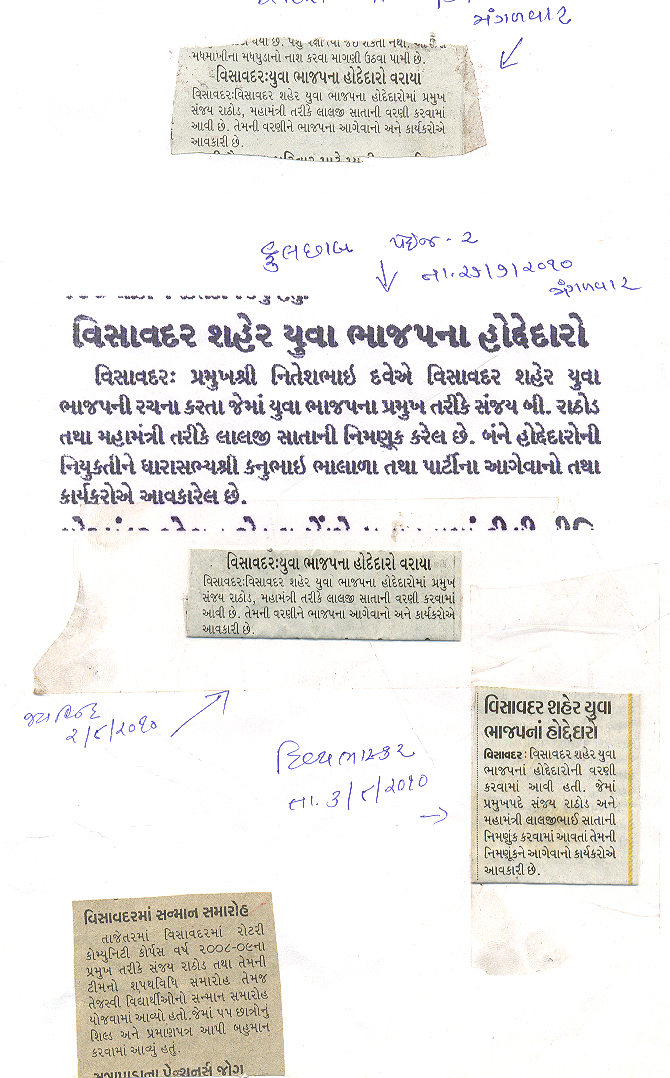 મંગળવાર
મધમાખીના મધપુડાનો નાશ કરવા માગણી ઉઠવા પામી છે.
વિસાવદર:યુવા ભાજપના હોદેદારો વરાયા
વિસાવદર:વિસાવદર શહેર યુવા ભાજપના હોદેદારોમાં પ્રમુખ
સંજય રાઠોડ, મહામંત્રી તરીકે લાલજી સાતાની વરણી કરવામાં
આવી છે. તેમની વરણીને ભાજપના આગેવાનો અને કાર્યકરોએ
આવકારી છે.
ફુલછાબ પેઇજ - ૨
તા. ૨૭/૭/૨૦૧૦
મંગળવાર
વિસાવદર શહેર યુવા ભાજપના હોદ્દેદારો
વિસાવદરઃ પ્રમુખશ્રી નિતેશભાઇ દવેએ વિસાવદર શહેર યુવા
ભાજપની રચના કરતા જેમાં યુવા ભાજપના પ્રમુખ તરીકે સંજય બી. રાઠોડ
તથા મહામંત્રી તરીકે લાલજી સાતાની નિમણૂક કરેલ છે. બંને હોદ્દેદારોની
નિયુકતીને ધારાસભ્યશ્રી કનુભાઇ ભાલાળા તથા પાર્ટીના આગેવાનો તથા
કાર્યકરોએ આવકારેલ છે.
વિસાવદર:યુવા ભાજપના હોદેદારો વરાયા
વિસાવદર:વિસાવદર શહેર યુવા ભાજપના હોદેદારોમાં પ્રમુખ
સંજય રાઠોડ, મહામંત્રી તરીકે લાલજી સાતાની વરણી કરવામાં
આવી છે. તેમની વરણીને ભાજપના આગેવાનો અને કાર્યકરોએ
આવકારી છે.
જયહિન્દ
૨/૮/૨૦૧૦
દિવ્યભાસ્કર
તા. ૩/૮/૨૦૧૦
વિસાવદર શહેર યુવા
ભાજપનાં હોદ્દેદારો
વિસાવદર : વિસાવદર શહેર યુવા
ભાજપનાં હોદ્દેદારોની વરણી
કરવામાં આવી હતી. જેમાં
પ્રમુખપદે સંજય રાઠોડ અને
મહામંત્રી લાલજીભાઈ સાતાની
નિમણુંક કરવામાં આવતાં તેમની
નિમણૂંકને આગેવાનો કાર્યકરોએ
આવકારી છે.
વિસાવદરમાં સન્માન સમારોહ
તાજેતરમાં વિસાવદરમાં રોટરી
કોમ્યુનિટી કોર્પસ વર્ષ ૨૦૦૮-૦૯ના
પ્રમુખ તરીકે સંજય રાઠોડ તથા તેમની
ટીમનો શપથવિધિ સમારોહ તેમજ
તેજસ્વી વિદ્યાર્થીઓનો સન્માન સમારોહ
યોજવામાં આવ્યો હતો.જેમાં ૫૫ છાત્રોનું
શિલ્ડ અને પ્રમાણપત્ર આપી બહુમાન
કરવામાં આવ્યું હતું.
સુત્રાપાડાના પેન્શનર્સ જોગ